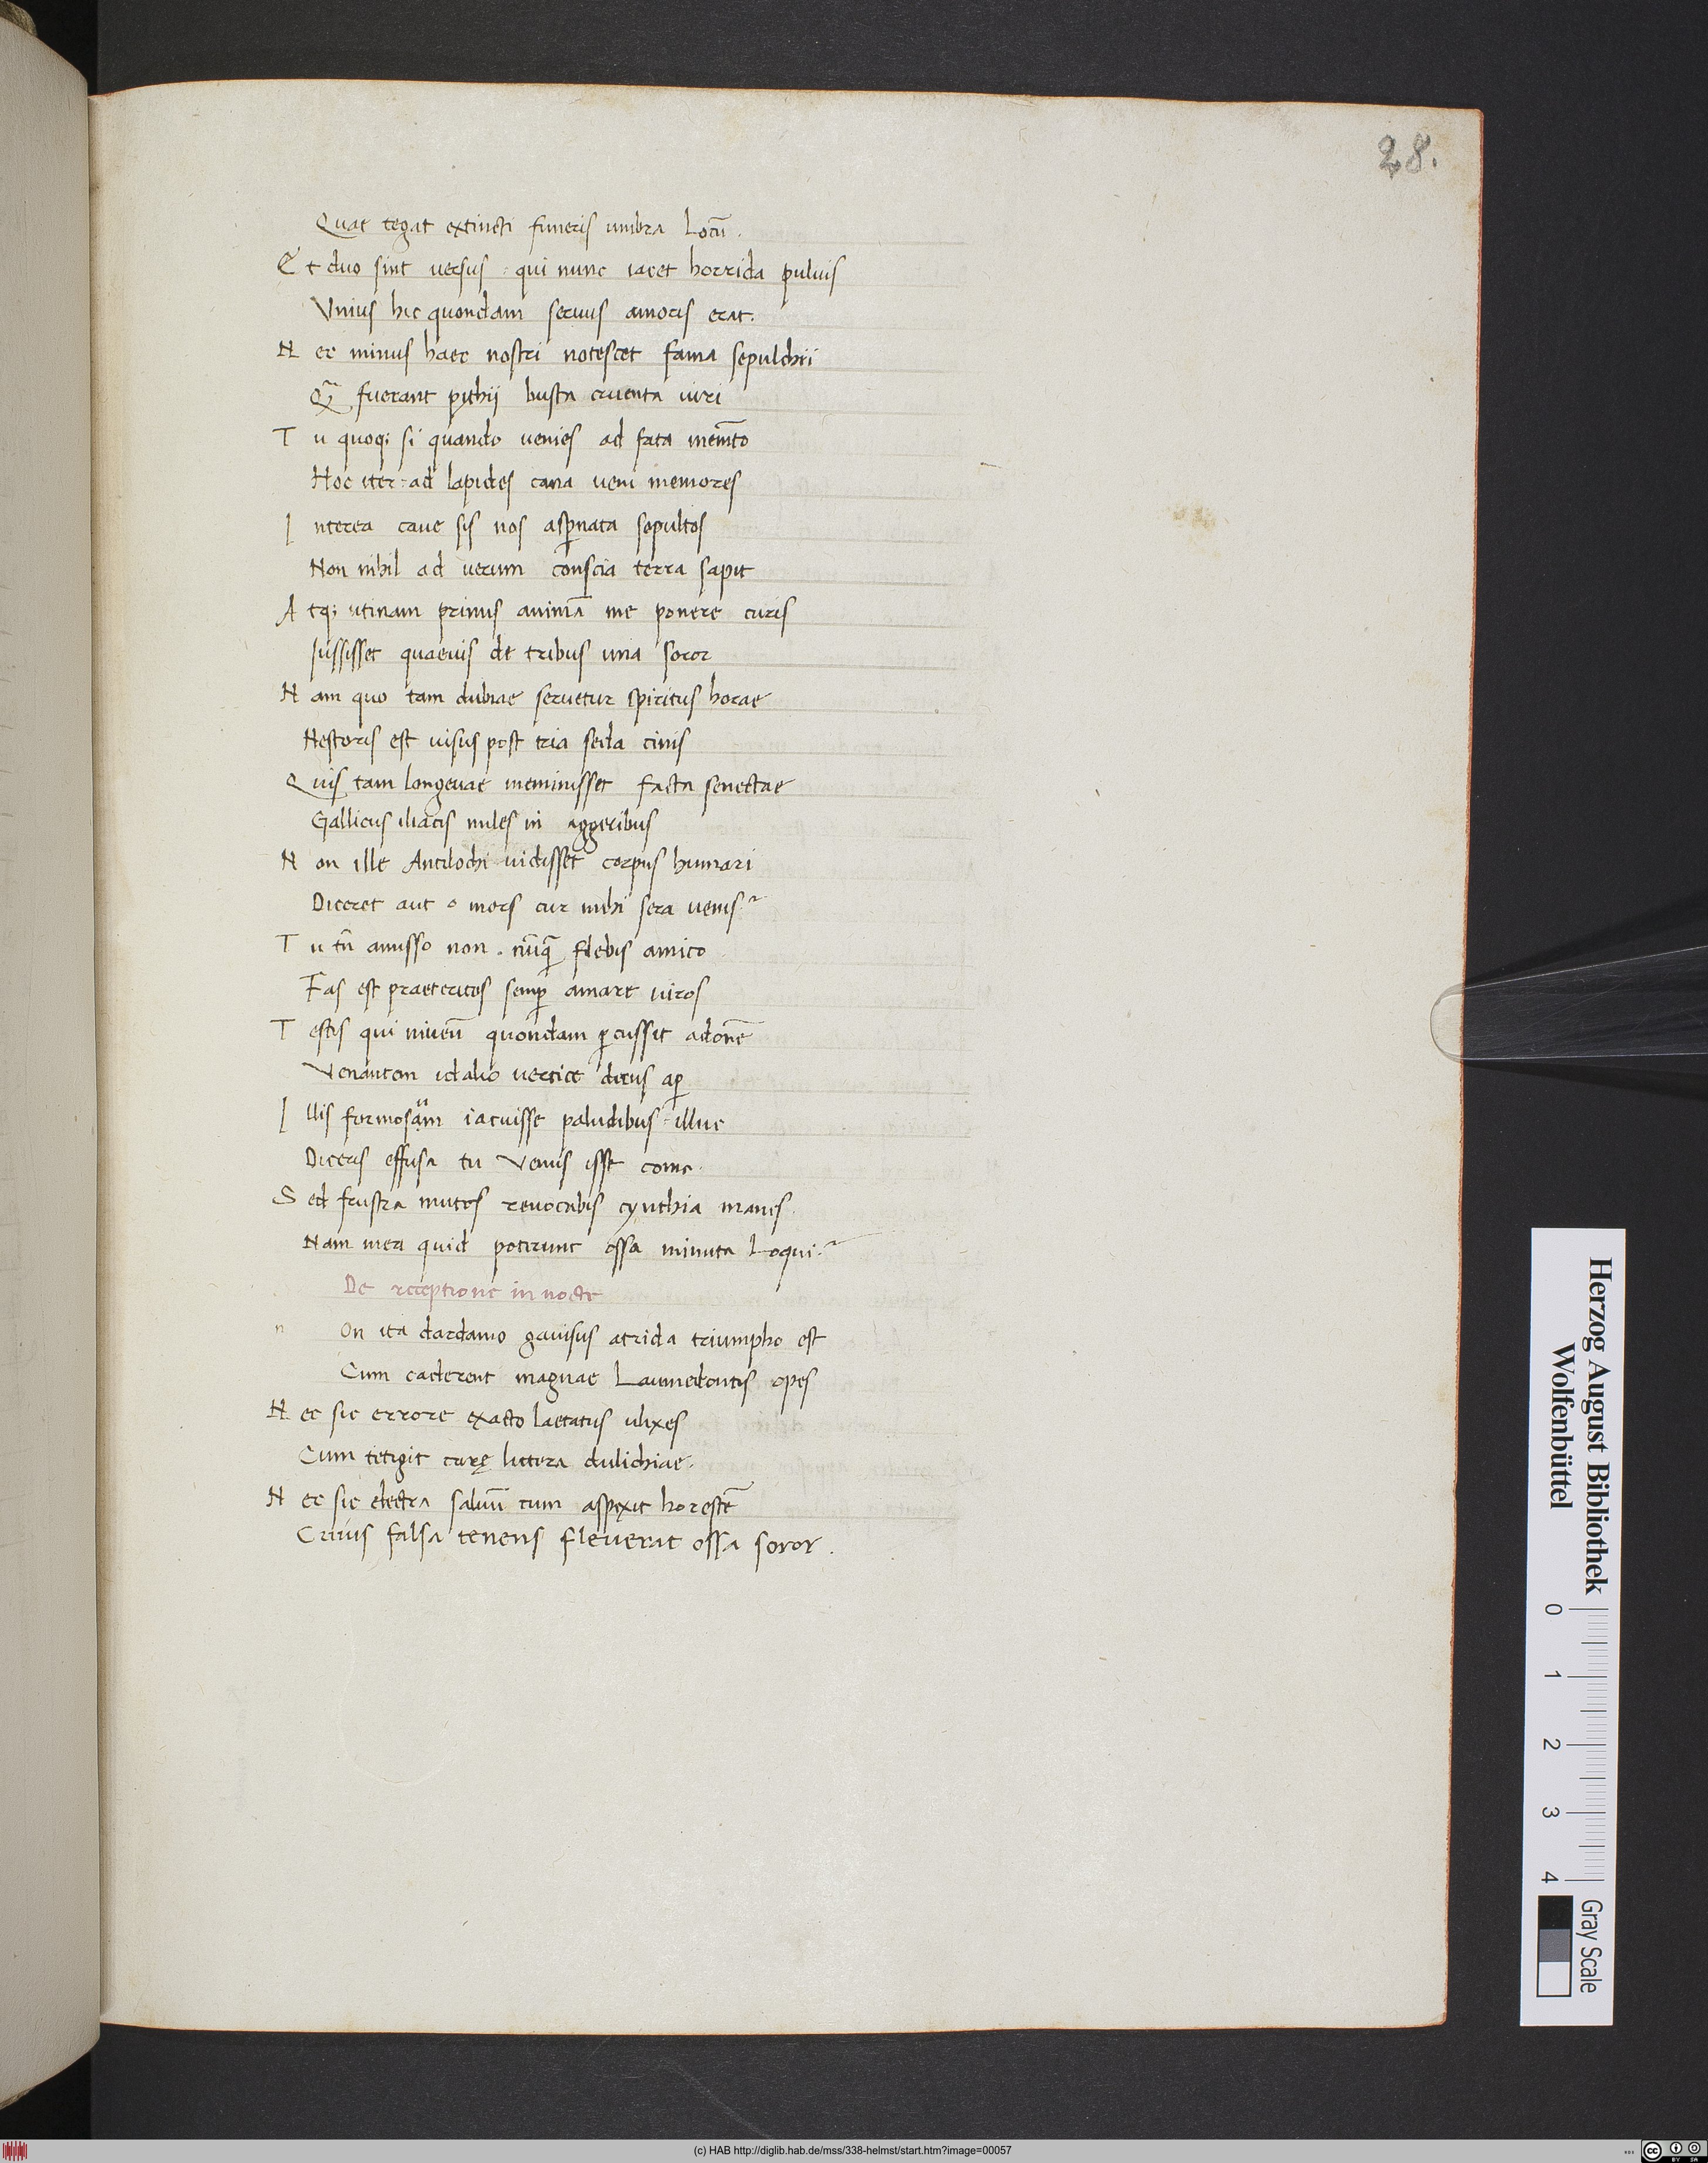 28.
Quae tegat extincti funeris umbra Locū.
Et duo sint uersus : qui nunc iacet horrida puluis
Vnius hic quondam seruus amoris erat.
N ec minus haec nostri notescet fama sepulchri
Q̃ fuerant pythii busta cruenta uiri
T u quoq; si quando uenies ad fata mem̄to
Hoc iter : ad lapides cana ueni memores
I nterea caue sis nos asp̱nata sepultos
Non nihil ad uerum conscia terra sapit
A tq; utinam primus animā me ponere curis
Iussisset quaeuis de tribus una soror
N am quo tam dubiae seruetur spiritus horae
Nestoris est uisus post tria secla cinis
Q uis tam longeuae meminisset facta senectae
Gallicus iliacis miles in aggeribus
N on ille Antilochi uidisset corpus humari
Diceret aut o mors cur mihi sera uenis?
T u tn̄ amisso non . nūq̄ flebis amico
Fas est praeteritos semp̱ amare uiros
T estis qui niueū quondam p̱cussit adonē
Venantem idalio uertice dirus ap̱
I llis formosam iacuisse paludibus : illuc
Diceris effusa tu Venus isse coma.
S ed frustra mutos reuocabis cynthia manes.
Nam mea quid poterunt ossa minuta Loqui?
De receptione in nocte
n On ita dardanio gauisus atrida triumpho est
Cum caderent magnae Laumedontis opes
N ec sic errore exacto laetatus ulixes
Cum tetigit carę littora dulichiae.
N ec sic electra saluū cum aspexit horestē
Cuius falsa tenens fleuerat ossa soror.
Herzog August Bibliothek
Wolfenbüttel
0 1 2 3 4
Gray Scale
(c) HAB http://diglib.hab.de/mss/338-helmst/start.htm?image=00057